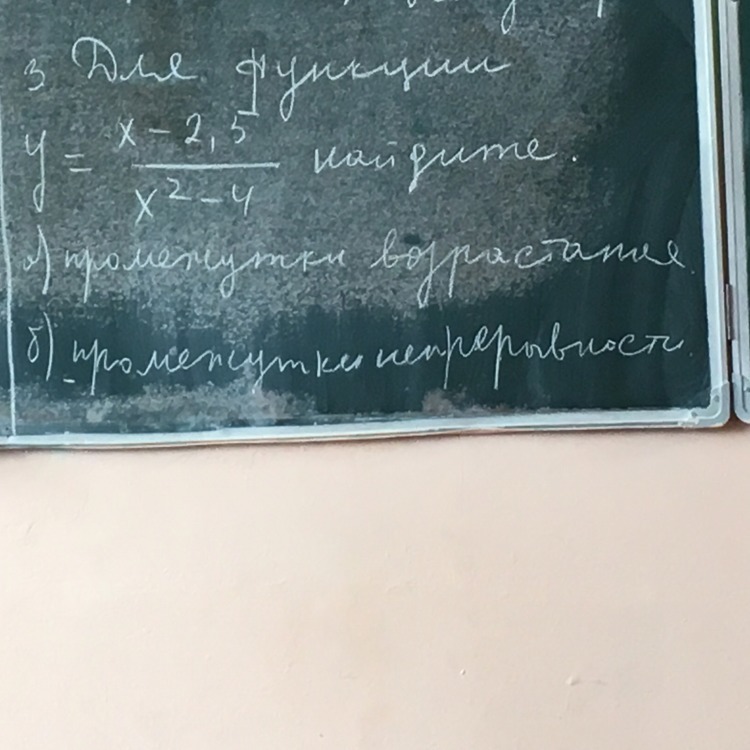 3 Для функции
y = x - 2,5 / x² - 4 найдите.
а) промежутки возрастания.
б) промежутки непрерывности.